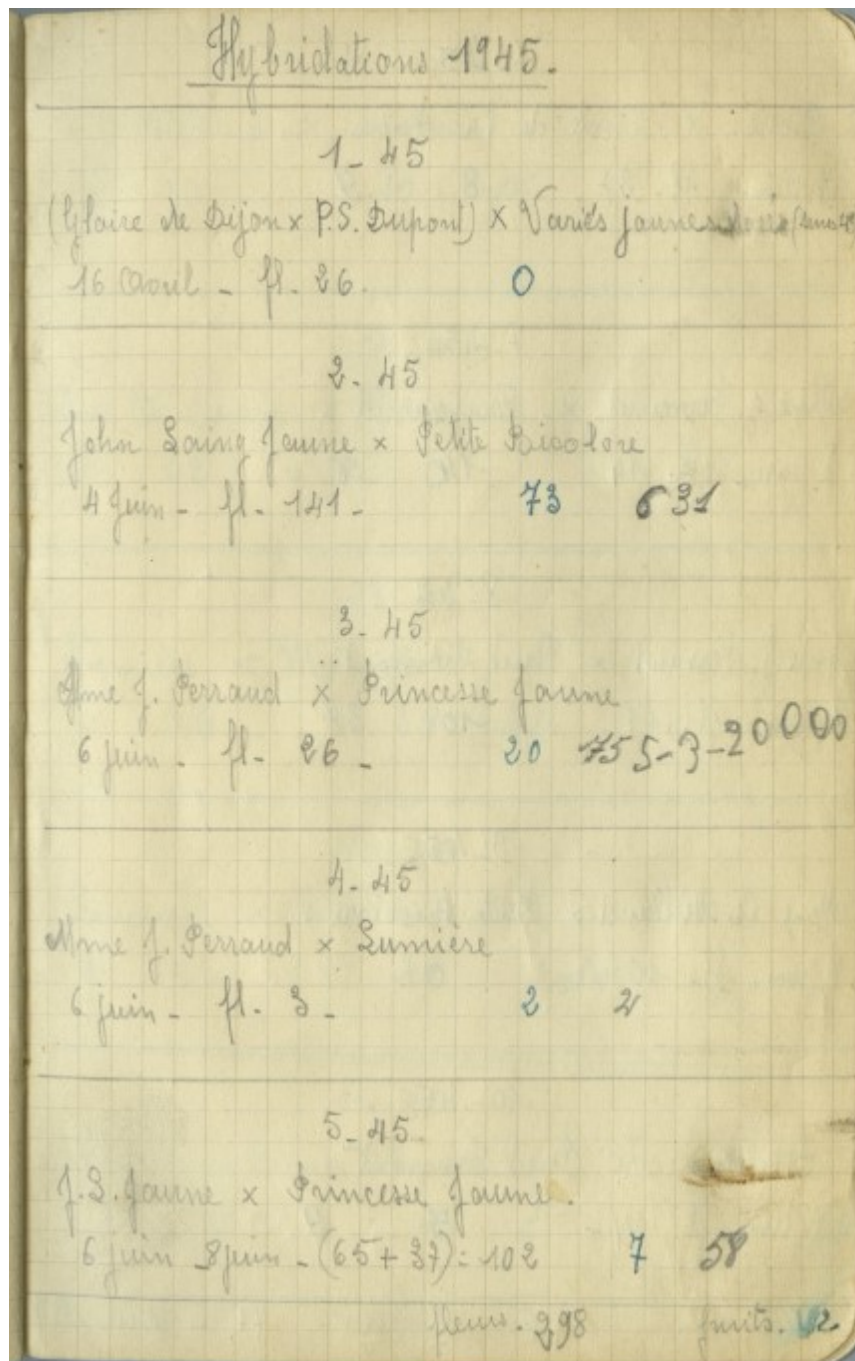 Hybridations 1945.
1_ 45
(Gloire de Dijon x P.S. Dupont) x Variés jaunes
16 Avril - fl. 26. 0
2. 45
John Laing Jaune x Petite Bicolore
4 Juin - fl. 141 - 73 631
3. 45
Mme J. Perraud x Princesse Jaune
6 juin - fl. 26 - 20 755-3-20000
4. 45
Mme J. Perraud x Lumière
6 juin - fl. 3 - 2 2
5_45
J.L. Jaune x Princesse Jaune.
6 juin 8 juin - (65 + 37) = 102 7 58
fleurs. 298 fruits.